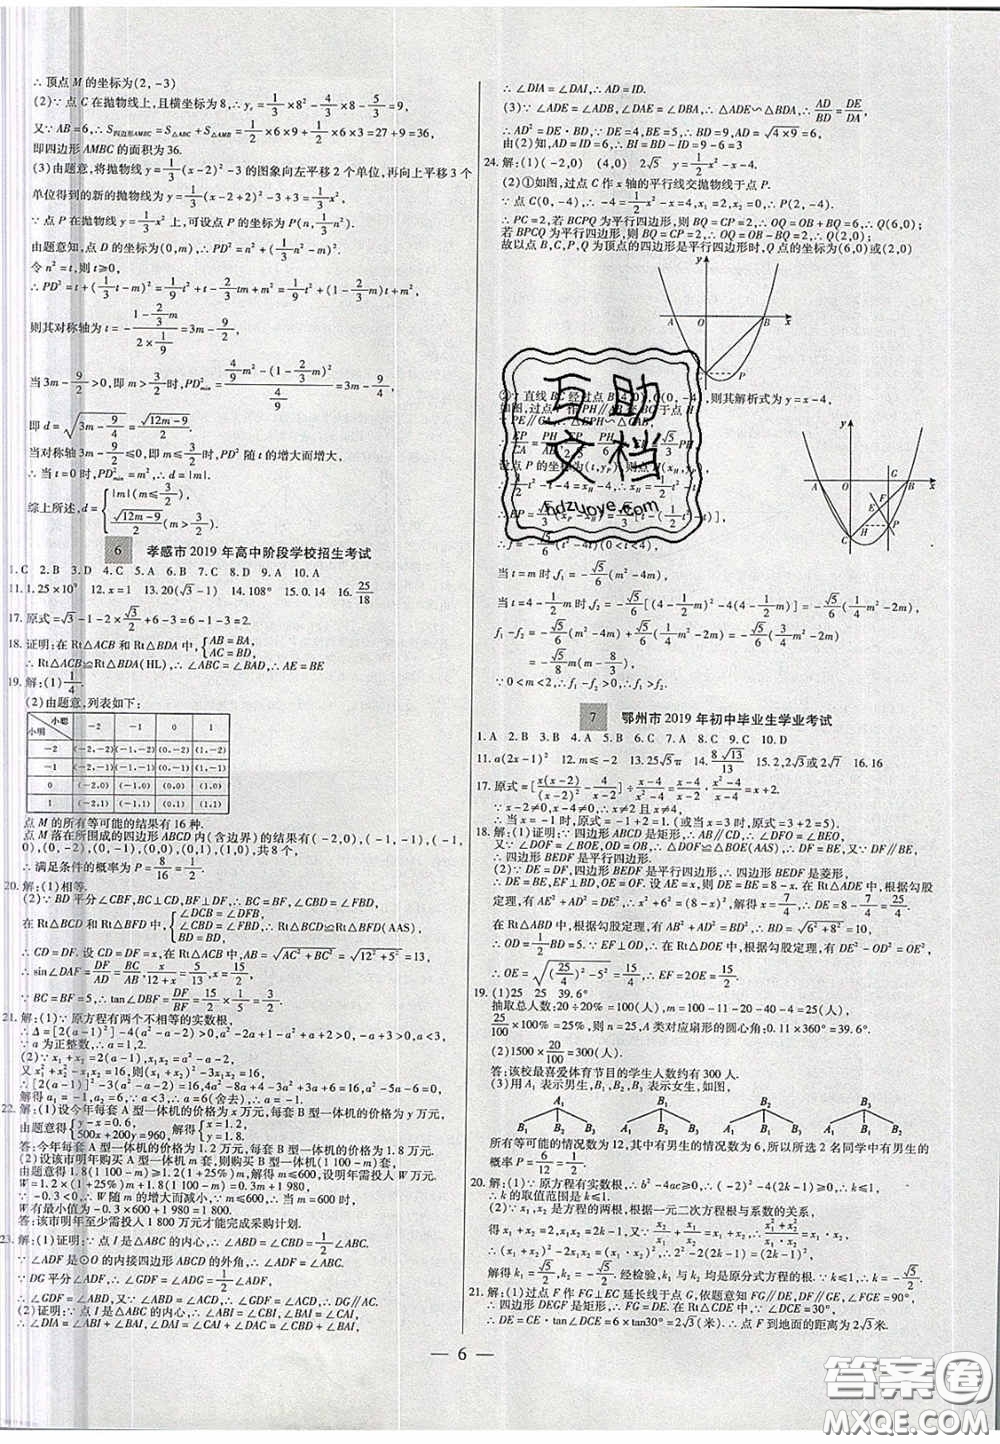 ∴ 顶点 M 的坐标为(2, -3)
(2)∵ 点 C 在抛物线上,且横坐标为 8,∴ y_c = 1/3 × 8² - 4/3 × 8 - 5/3 = 9,
又∵ AB = 6,∴ S四边形AMBC = S△ABC + S△AMB = 1/2 × 6 × 9 + 1/2 × 6 × 3 = 27 + 9 = 36,
即四边形 AMBC 的面积为 36.
(3)由题意,将抛物线 y = 1/3(x - 2)² - 3 的图象向左平移 2 个单位,再向上平移 3 个
单位得到的新的抛物线为 y = 1/3(x - 2 + 2)² - 3 + 3 = 1/3 x².
∵ 点 P 在抛物线 y = 1/3 x² 上,可设点 P 的坐标为 P(n, 1/3 n²),
由题意知,点 D 的坐标为(0,m),∴ PD² = n² + (1/3 n² - m)².
令 n² = t,则 t ≥ 0,
∴ PD² = t + (1/3 t - m)² = 1/9 t² + t - 2/3 mt + m² = 1/9 t² + (1 - 2/3 m)t + m²,
则其对称轴为 t = - (1 - 2/3 m)/(2 × 1/9) = 3m - 9/2,
当 3m - 9/2 > 0,即 m > 3/2 时,PD²min = (4/9 m² - (1 - 2/3 m)²)/(4/9) = 3m - 9/4,
即 d = √(3m - 9/4) = √(12m - 9)/2.
当对称轴为 3m - 9/2 ≤ 0,即 m ≤ 3/2 时,PD² 随 t 的增大而增大,
∴ 当 t = 0 时,PD²min = m²,∴ d = |m|.
综上所述,d = { |m|(m ≤ 3/2), √(12m - 9)/2 (m > 3/2).
6 孝感市 2019 年高中阶段学校招生考试
1. C 2. B 3. D 4. C 5. A 6. B 7. D 8. C 9. A 10. A
11. 1.25 × 10⁹ 12. x = 1 13. 20(√3 - 1) 14. 108° 15. 0.14 16. 25/18
17. 原式 = √3 - 1 - 2 × √3/2 + 6 - 3 = 6 - 1 - 3 = 2.
18. 证明:在 Rt△ACB 和 Rt△BDA 中,{AB = BA, AC = BD,
∴ Rt△ACB≌Rt△BDA(HL),∴ ∠ABC = ∠BAD,∴ AE = BE
19. 解:(1) 1/4.
(2)由题意,列表如下:
小聪 小明 -2 -1 0 1
-2 (-2, -2) (-1, -2) (0, -2) (1, -2)
-1 (-2, -1) (-1, -1) (0, -1) (1, -1)
0 (-2,0) (-1,0) (0,0) (1,0)
1 (-2,1) (-1,1) (0,1) (1,1)
点 M 的所有等可能的结果有 16 种.
点 M 落在所围成的四边形 ABCD 内(含边界)的结果有(-2,0),(-1, -1),(-1,
0),(0, -2),(0, -1),(0,0),(0,1),(1,0),共 8 个,
∴ 满足条件的概率为 P = 8/16 = 1/2.
20. 解:(1)相等.
(2)∵ BD 平分∠CBF,BC⊥CD,BF⊥DF,∴ BC = BF,∠CBD = ∠FBD,
在 Rt△BCD 和 Rt△BFD 中,{∠DCB = ∠DFB, ∠CBD = ∠FBD, BD = BD, ∴ Rt△BCD≌Rt△BFD(AAS),
∴ CD = DF. 设 CD = DF = x,在 Rt△ACB 中,AB = √(AC² + BC²) = √(12² + 5²) = 13,
∴ sin∠DAF = DF/AD = BC/AB,即 x/(12 + x) = 5/13,∴ x = 15/2.
∵ BC = BF = 5,∴ tan∠DBF = DF/BF = 15/2 × 1/5 = 3/2.
21. 解:(1)∵ 原方程有两个不相等的实数根,
∴ Δ = [2(a - 1)²] - 4(a² - a - 2) > 0,a² - 2a + 1 - a² + a + 2 > 0,解得 a < 3.
∵ a 为正整数,∴ a = 1,2.
(2)∵ x₁ + x₂ = 2(a - 1),x₁x₂ = a² - a - 2,
又 x₁² + x₂² - x₁x₂ = 16,则(x₁ + x₂)² - 3x₁x₂ = 16,
∴ [2(a - 1)]² - 3(a² - a - 2) = 16,4a² - 8a + 4 - 3a² + 3a + 6 = 16,
∴ a₁ = -1,a₂ = 6. ∵ a < 3,∴ a = 6(舍去),∴ a = -1.
22. 解:(1)设今年每套 A 型一体机的价格为 x 万元,每套 B 型一体机的价格为 y 万元,
由题意得{y - x = 0.6, 500x + 200y = 960, 解得{x = 1.2, y = 1.8.
答:今年每套 A 型一体机的价格为 1.2 万元,每套 B 型一体机的价格为 1.8 万元.
(2)设该市明年购买 A 型一体机 m 套,则购买 B 型一体机(1 100 - m)套,
由题意得 1.8(1 100 - m) ≥ 1.2(1 + 25%)m,解得 m ≤ 600,设明年需投入 W 万元,
W = 1.2 × (1 + 25%)m + 1.8(1 100 - m) = -0.3m + 1 980.
∵ -0.3 < 0,∴ W 随 m 的增大而减小,∵ m ≤ 600,∴ 当 m = 600 时,
W 有最小值为 -0.3 × 600 + 1 980 = 1 800.
答:该市明年至少需投入 1 800 万元才能完成采购计划.
23. 解:(1)证明:∵ 点 I 是△ABC 的内心,∴ ∠ABD = ∠CBD = 1/2∠ABC.
∵ ∠ADF 是⊙O 的内接四边形 ABCD 的外角,∴ ∠ADF = ∠ABC,
∵ DG 平分∠ADF,∴ ∠GDF = ∠ADG = 1/2∠ADF,
∴ ∠ADG = ∠ABD,又∵ ∠ABD = ∠ACD,∴ ∠GDA = ∠ACD,∴ DG∥AC.
(2)证明:∵ 点 I 是△ABC 的内心,∴ ∠ABI = ∠CBI,∠BAI = ∠CAI,
∴ ∠DIA = ∠ABI + ∠BAI = ∠CBI + ∠BAI = ∠CAD + ∠BAI,
∴ ∠DIA = ∠DAI,∴ AD = ID.
(3)∵ ∠ADE = ∠BDA,∠DAE = ∠DBA,∴ △ADE∽△BDA,∴ AD/BD = DE/DA,
∴ AD² = DE · BD,∵ DE = 4,BE = 5,∴ BD = 9,∴ AD = √(4 × 9) = 6,
由(2)知,AD = ID = 6,∴ BI = BD - ID = 9 - 6 = 3
24. 解:(1)(-2,0) (4,0) 2√5 y = 1/2 x² - x - 4
(2)①如图,过点 C 作 x 轴的平行线交抛物线于点 P.
∵ 点 C(0, -4),∴ -4 = 1/2 x² - x - 4,x₁ = 2,x₂ = 0,∴ P(2, -4),
∴ PC = 2,若 BCPQ 为平行四边形,则 BQ = CP = 2,∴ OQ = OB + BQ = 6,∴ Q(6,0);
若 BPCQ 为平行四边形,则 BQ = CP = 2,∴ OQ = OB - BQ = 2,∴ Q(2,0)
故以点 B,C,P,Q 为顶点的四边形是平行四边形时,Q 点的坐标为(6,0)或(2,0)
y A O B x C P
②∵ 直线 BC 经过点 B(4,0),C(0, -4),则其解析式为 y = x - 4,
y A O G B x F E C H P
当 t = m 时,f₁ = -√5/6(m² - 4m),
当 t = 4 - m 时,f₂ = -√5/6[(4 - m)² - 4(4 - m)] = -√5/6(m² - 4m),
7 鄂州市 2019 年初中毕业生学业考试
1. A 2. B 3. B 4. A 5. A 6. C 7. B 8. C 9. C 10. D
11. a(2x - 1)² 12. m ≤ -2 13. 25√5π 14. 8√13/13 15. 2,2√3或2√7 16. 16
17. 原式 = [x(x - 2)/(x - 2)² - 4/(x - 2)] ÷ (x - 4)/(x² - 4) = (x - 4)/(x - 2) × (x² - 4)/(x - 4) = x + 2.
∵ x - 2 ≠ 0,x - 4 ≠ 0,∴ x ≠ 2 且 x ≠ 4,
∴ 当 x = -1 时,原式 = -1 + 2 = 1.(或当 x = 3 时,原式 = 3 + 2 = 5).
18. 解:(1)证明:∵ 四边形 ABCD 是矩形,∴ AB∥CD,∴ ∠DFO = ∠BEO,
又∵ ∠DOF = ∠BOE,OD = OB,∴ △DOF≌△BOE(AAS),∴ DF = BE,
∴ 四边形 BEDF 是平行四边形.
(2)∵ DE = DF,四边形 BEDF 是平行四边形,∴ 四边形 BEDF 是菱形,
∴ DE = BE,EF⊥BD,OE = OF. 设 AE = x,则 DE = BE = 8 - x,在 Rt△ADE 中,根据勾股
定理,有 AE² + AD² = DE²,∴ x² + 6² = (8 - x)²,解得 x = 7/4,∴ DE = 8 - 7/4 = 25/4.
在 Rt△ABD 中,根据勾股定理,有 AB² + AD² = BD²,∴ BD = √(6² + 8²) = 10,
∴ OD = 1/2 BD = 5. ∵ EF⊥OD,在 Rt△DOE 中,根据勾股定理,有 DE² - OD² = OE²,
∴ OE = √((25/4)² - 5²) = 15/4,∴ EF = 2OE = 15/2.
19. (1)25 25 39.6°
抽取总人数:20 ÷ 20% = 100(人),m = 100 - 11 - 20 - 40 - 4 = 25(人),
25/100 × 100% = 25%,所以 n = 25,A 类对应扇形的圆心角:0.11 × 360° = 39.6°.
(2)1500 × 20/100 = 300(人).
答:该校最喜爱体育节目的学生人数约有 300 人.
(3)用 A₁ 表示男生,B₁,B₂,B₃ 表示女生,如图,
A₁ B₁ B₂ B₃
B₁ B₂ B₃ A₁ B₂ B₃ A₁ B₁ B₃ A₁ B₁ B₂
所有等可能的情况数为 12,其中有男生的情况数为 6,所以所选 2 名同学中有男生的
概率 P = 6/12 = 1/2.
20. 解:(1)∵ 原方程有实数根,∴ b² - 4ac ≥ 0,∴ (-2)² - 4(2k - 1) ≥ 0,∴ k ≤ 1,
∴ k 的取值范围是 k ≤ 1.
(2)∵ x₁,x₂ 是方程的两根,根据一元二次方程根与系数的关系,
∴ (x₁ + x₂)² - 2x₁x₂ = (x₁x₂)²,∴ 2² - 2(2k - 1) = (2k - 1)²,
解得 k₁ = √5/2,k₂ = -√5/2. 经检验,k₁ 与 k₂ 均是原分式方程的根. ∵ k ≤ 1,∴ k = -√5/2.
21. 解:(1)过点 F 作 FG⊥EC 延长线于点 G,依题意知 FG∥DE,DF∥GE,∠FGE = 90°,
∴ 四边形 DEGF 是矩形,∴ FG = DE. 在 Rt△CDE 中,∵ ∠DCE = 30°,
∴ DE = CE · tan∠DCE = 6 × tan30° = 2√3(米),∴ 点 F 到地面的距离为 2√3米.
— 6 —
互助文档
hdzuoye.com
答案圈
MXQE.COM